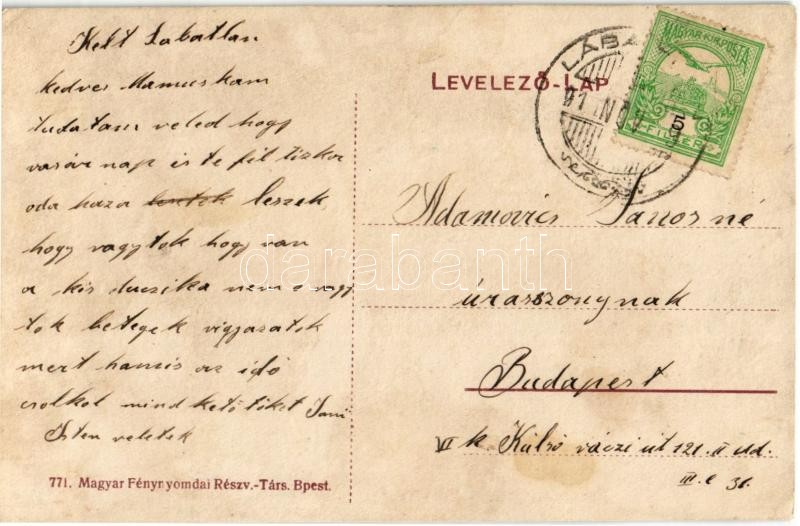 Kelt Labatlan
kedves Mamuskam
tudatam veled hogy
vasár nap este fél tizkor
oda haza leszek
hogy vagytok hogy van
a kis duczika nem e vagy
tok betegek vigjazatok
mert hamis az idő
csolkol mind ketőtöket Jani
Isten veletek
771. Magyar Fénynyomdai Részv.-Társ. Bpest.
LEVELEZŐ-LAP
LÁBA
MAGYAR KIR. POSTA
5
FILLÉR
Adamovics Janosné
úrasszonynak
Budapest
VI k. Külső váczi út 121. II ud.
III. e 31.
darabanth